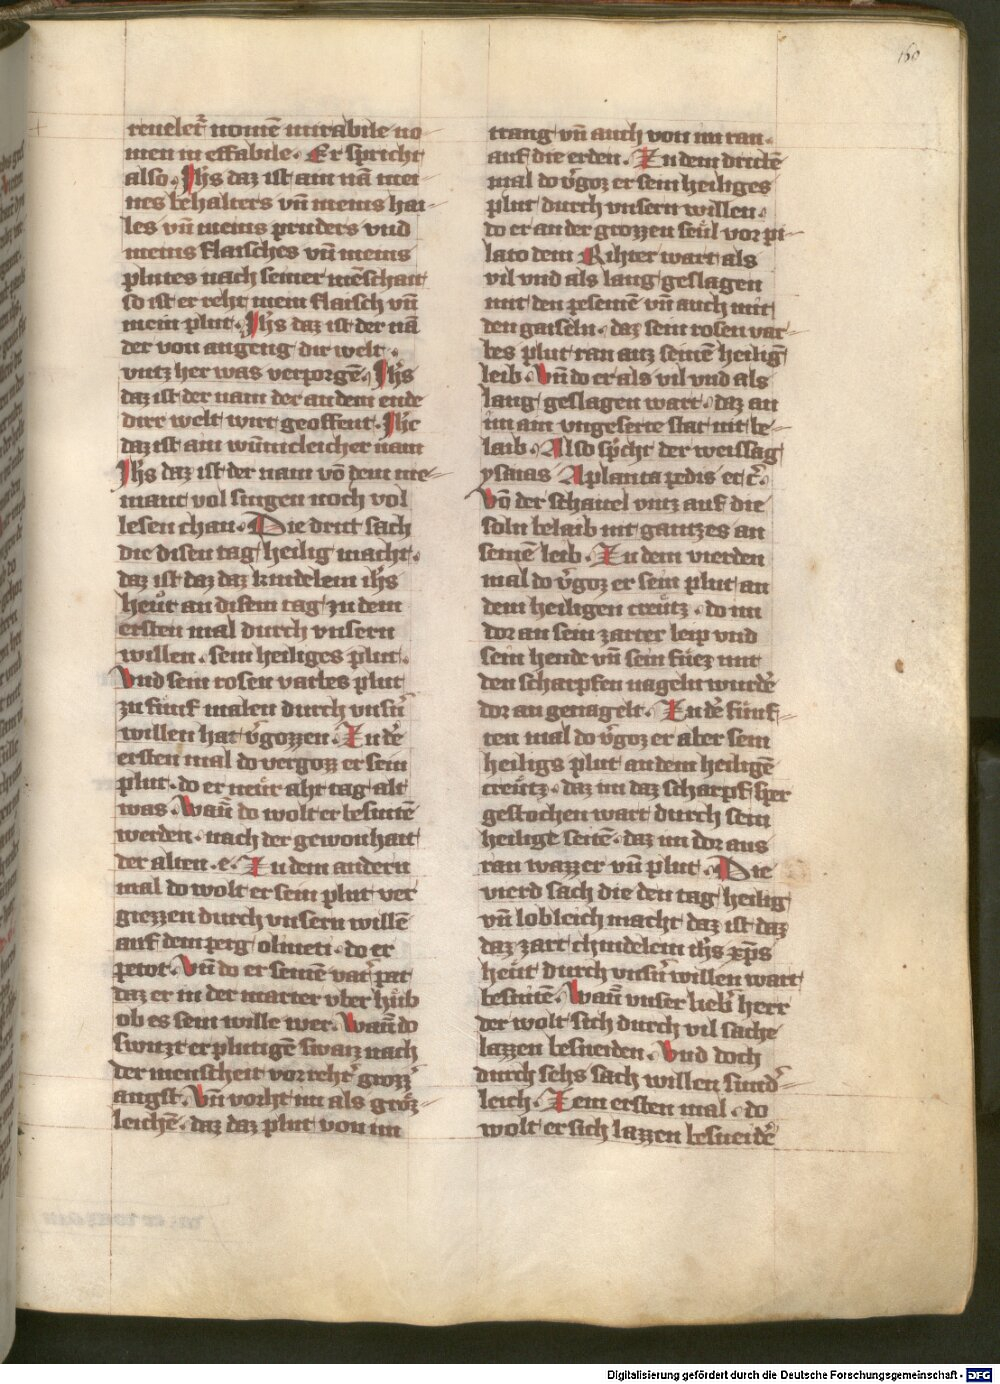 160
reuelet᷎ nomē mirabile no-
men in effabile. Er spricht
also. Ihs daz ist ain nā mei-
nes behalters vn̄ meins hai-
les vn̄ meins pruders vnd
meins flaisches vn̄ meins
plutes nach seiner mēschait
so ist er reht mein flaisch vn̄
mein plut. Ihs daz ist der nā
der von angeng dir welt.
vntz her was verporgē. Ihs
daz ist der nam der an dem ende
dirr welt wirt geoffent. Ihc
daz ist ain wūnicleicher nam
Ihs daz ist der nam vō dem nie-
mant vol singen noch vol
lesen chan. Die drit sach
die disen tag heilig macht.
daz ist daz daz kindelein ihs
heut an disem tag zu dem
ersten mal durch vnsern
willen. sein heiliges plut.
Vnd sein rosen varbes plut
zu fünf malen durch vnsn᷎
willen hat v᷎gozzen. Zu dē
ersten mal do vergozz er sein
plut. do er neür aht tag alt
was. Wann̄ do wolt er besnitē
werden. nach der gewonhait
der alten. e. Zu dem andern
mal do wolt er sein plut ver
giezzen durch vnsern willē
auf dem perg oliueti. do er
petot. Vn̄ do er seinē vat᷎ pat
daz er in der marter vber hüb
ob es sein wille wer. Wann̄ do
switzt er plutigē swaiz nach
der menscheit vor reht᷎ grozz᷎
angst. Vn̄ vorht im als gröz-
leichē. daz daz plut von im
trang vn̄ auch von im ran.
auf die erden. Zu dem drittē
mal do v᷎goz er sein heiliges
plut durch vnsern willen.
do er an der grozzen seül vor pi-
lato dem Rihter wart als
vil vnd als lang geslagen
mit den pesemē vn̄ auch mit
den gaiseln. daz sein rosen var-
bes plut ran auz seinē heiliḡ
leib. Vn̄ do er als vil vnd als
lang geslagen wart. daz an
im ain vngeserte stat nit be-
laib. Also sp᷎cht der weissag
ysaias A planta pedis et c᷎.
Vō der schaitel vntz auf die
soln belaib nit gantzes an
seinē leib. Zu dem vierden
mal do v᷎goz er sein plut an
dem heiligen creütz. do im
dor an sein zarter leip vnd
sein hende vn̄ sein füez mit
den scharpfen nageln wurdē
dor an genagelt. Zu dē fünf-
ten mal do v᷎goz er aber sein
heiligs plut an dem heiligē
creütz. daz im daz scharpf sper
gestochen wart durch sein
heilige seitē. daz im dor aus
ran wazzer vn̄ plut. Die
vierd sach die den tag heilig
vn̄ lobleich macht daz ist daz
daz zart chindelein ihs xp̄s
heüt durch vnsn᷎ willen wart
besnitē. Wann̄ vnser lieb᷎ herr
der wolt sich durch vil sache
lazzen besneiden. Vnd doch
durch sehs sach willen sund᷎-
leich. Zem ersten mal. do
wolt er sich lazzen besneidē
Digitalisierung gefördert durch die Deutsche Forschungsgemeinschaft - DFG